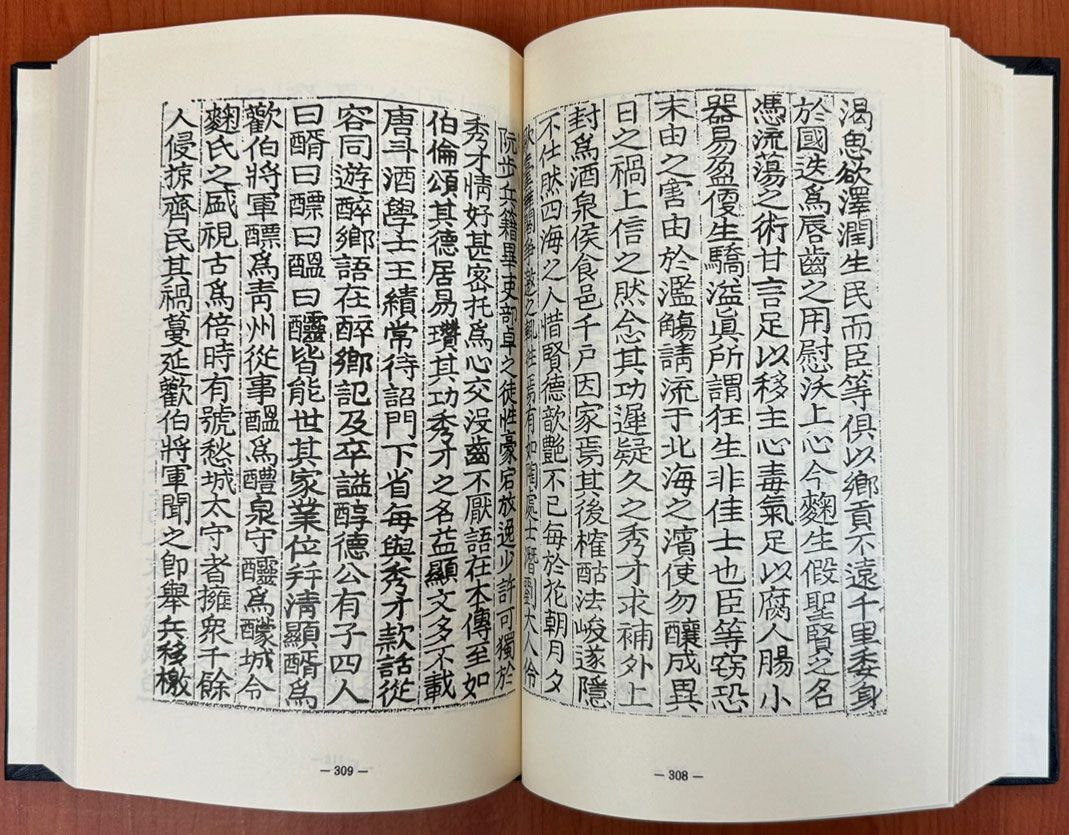 渴思欲澤潤生民而臣等俱以鄉貢不遠千里委身
於國迭爲唇齒之用慰沃上心今麴生假聖賢之名
憑流蕩之術甘言足以移主心毒氣足以腐人腸小
器易盈生驕溢眞所謂狂生非佳士也臣等竊恐
末由之害由於濫觴請流于北海之濱使勿釀成異
日之禍上信之然念其功遲疑久之秀才求補外上
封爲酒泉侯食邑千戶因家焉其後榨酤法峻遂隱
不仕然四海之人惜賢德歆艶不已每於花朝月夕
爭邀之有如陶處士潛劉大人伶
— 308 —
阮步兵籍畢吏部卓之徒性豪宕放逸少許可獨於
秀才情好甚密托爲心交沒齒不厭語在本傳至如
伯倫頌其德居易瓚其功秀才之名益顯文多不載
唐斗酒學士王績常待詔門下省每與秀才款話從
容同遊醉鄉語在醉鄉記及卒謚醇德公有子四人
曰醑曰醥曰醞曰醽皆能世其家業位幷淸顯醑爲
歡伯將軍醥爲靑州從事醞爲醴泉守醽爲醿城令
麴氏之盛視古爲倍時有號愁城太守者擁衆千餘
人侵掠齊民其禍蔓延歡伯將軍聞之卽舉兵移檄
— 309 —